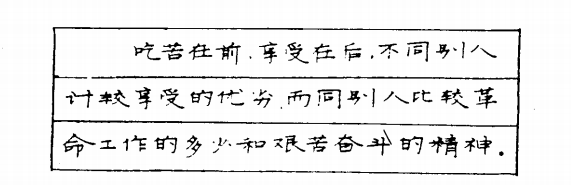 吃苦在前、享受在后，不同别人
计较享受的优劣，而同别人比较革
命工作的多少和艰苦奋斗的精神。